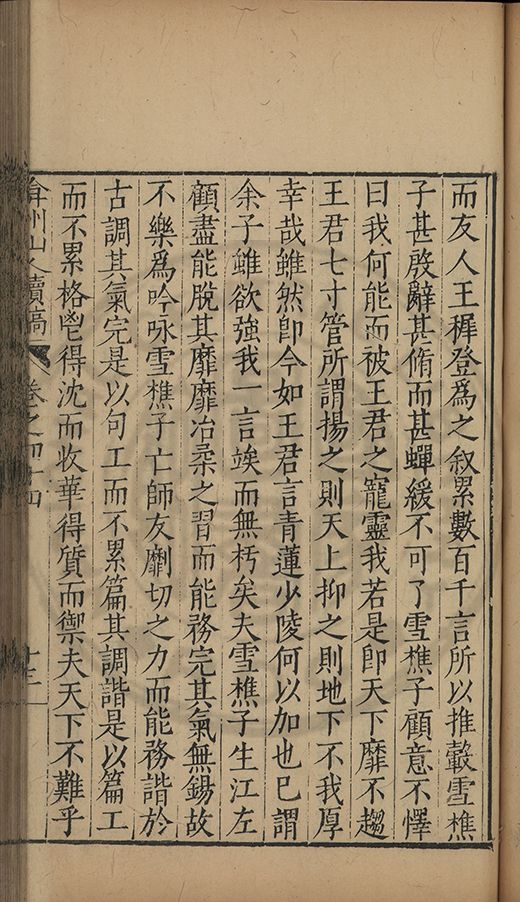 而友人王穉登為之叙累數百千言所以推轂雪樵
子甚殷辭甚脩而甚蟬緩不可了雪樵子顧意不懌
曰我何能而被王君之寵靈我若是卽天下靡不趨
王君七寸管所謂揚之則天上抑之則地下不我厚
幸哉雖然卽今如王君言青蓮少陵何以加也巳謂
余子雖欲強我一言竢而無朽矣夫雪樵子生江左
顧盡能脫其靡靡冶柔之習而能務完其氣無錫故
不樂為吟咏雪樵子亡師友劘切之力而能務諧於
古調其氣完是以句工而不累篇其調諧是以篇工
而不累格鬯得沈而收華得質而禦夫天下不難乎
弇州山人續稿 卷之四十四 十三